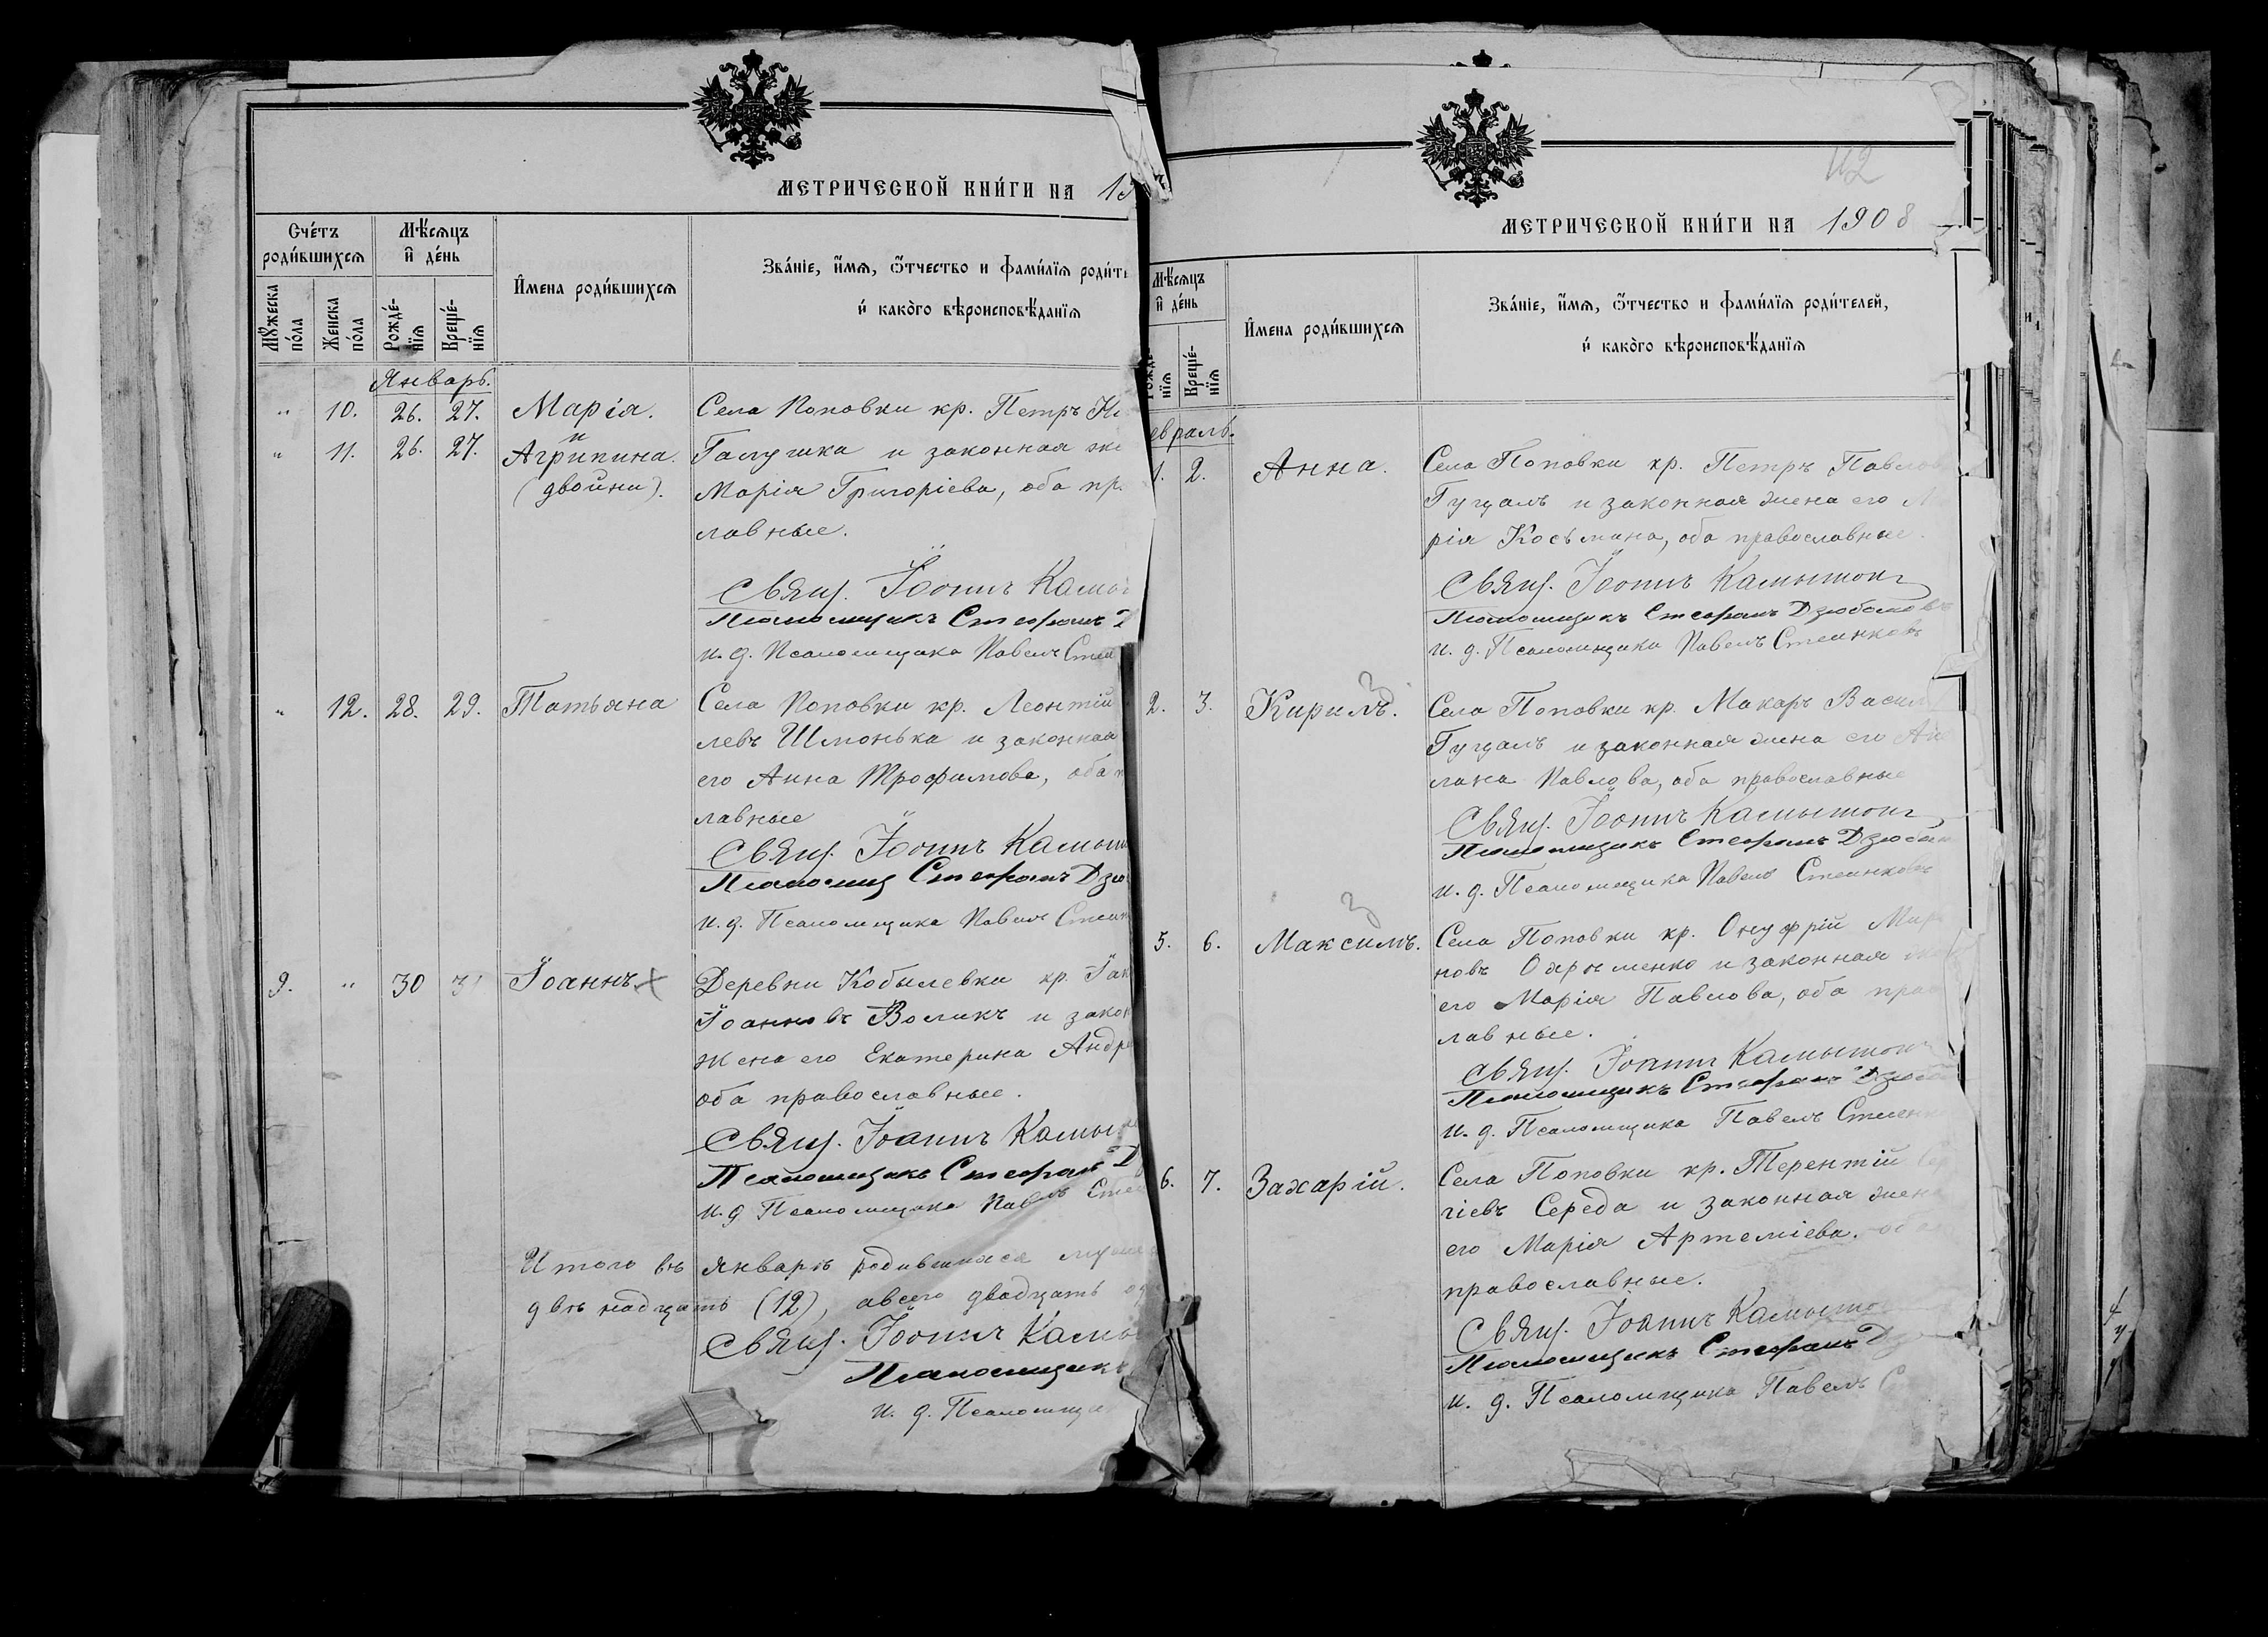 МЕТРИЧЕСКОЙ КНИ́ГИ НА 19
Счéтъ роди́вшихсѧ
Мѣ́сѧцъ и҆ де́нь
И҆мена роди́вшихсѧ
Зва́нїе, и҆́мѧ, ѻ҆́тчество и фами́лїѧ роди́те
и҆ како́го вѣроисповѣ́данїѧ
Мꙋ́жеска по́ла
Же́нска по́ла
Рожде́нїѧ
Креще́нїѧ
Январь.
" 10. 26. 27. Марія. Села Поповки кр. Петръ
и
" 11. 26. 27. Агрипина. Галушка и законная же
(двойни). Марія Григоріева, оба пр.
лавные.
Свящ. Іоаннъ Камы
Псаломщикъ Стефанъ Д
и. д. Псаломщика Павелъ Стеи
" 12. 28. 29. Татьяна Села Поповки кр. Леонтій
левъ Шмонька и законная
его Анна Трофимова, оба п
лавные
Свящ. Іоаннъ Камыш
Псаломщ Стефанъ Дзю
и. д. Псаломщика Павелъ Стеин
9. " 30 31 Іоаннъ. Деревни Кобылевки кр. Іак
Іоанновъ Воликъ и закон
жена его Екатерина Андре
оба православные.
Свящ. Іоаннъ Камы
Псаломщикъ Стефанъ Д
и. д Псаломщика Павелъ Стеи
Итого въ январѣ родившихся муже
двѣнадцать (12), а всего двадцать од
Свящ. Іоаннъ Камы
Псаломщикъ
и. д. Псаломщи
42
МЕТРИЧЕСКОЙ КНИ́ГИ НА 1908
Мѣ́сѧцъ и҆ де́нь
И҆мена роди́вшихсѧ
Зва́нїе, и҆́мѧ, ѻ҆́тчество и фами́лїѧ роди́телей,
и҆ како́го вѣроисповѣ́данїѧ
Рожде́нїѧ
Креще́нїѧ
евраль.
1. 2. Анна. Села Поповки кр. Петръ Павлов
Гуцалъ и законная жена его М
рія Косьмина, оба православные.
Свящ. Іоаннъ Камышонъ
Псаломщикъ Стефанъ Дзюбановъ
и. д. Псаломщика Павелъ Стеинковъ
2. 3. Кирилъ. Села Поповки кр. Макаръ Васил
Гуцалъ и законная жена его
лана Павлова, оба православные
Свящ. Іоаннъ Камышонъ
Псаломщикъ Стефанъ Дзюбан
и. д. Псаломщика Павелъ Стеинковъ
5. 6. Максимъ. Села Поповки кр. Онуфрій Миро
новъ Охрѣменко и законная жен
его Марія Павлова, оба прав
лавные.
Свящ. Іоаннъ Камышонъ
Псаломщикъ Стефанъ Дзюба
и. д. Псаломщика Павелъ Стеинк
6. 7. Захарій. Села Поповки кр. Терентій Сер
гіевъ Середа и законная жена
его Марія Артеміева. оба
православные.
Свящ. Іоаннъ Камышо
Псаломщикъ Стефанъ Дзю
и. д. Псаломщика Павелъ С